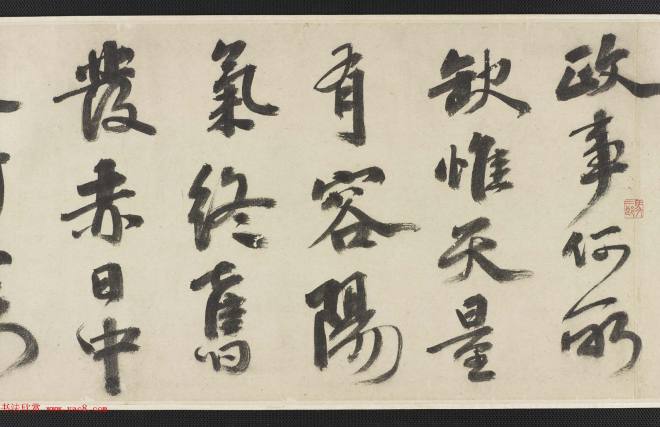 政事何所
缺惟天量
有容陽
氣終奮
發赤日中
书法欣赏 www.yac8.com